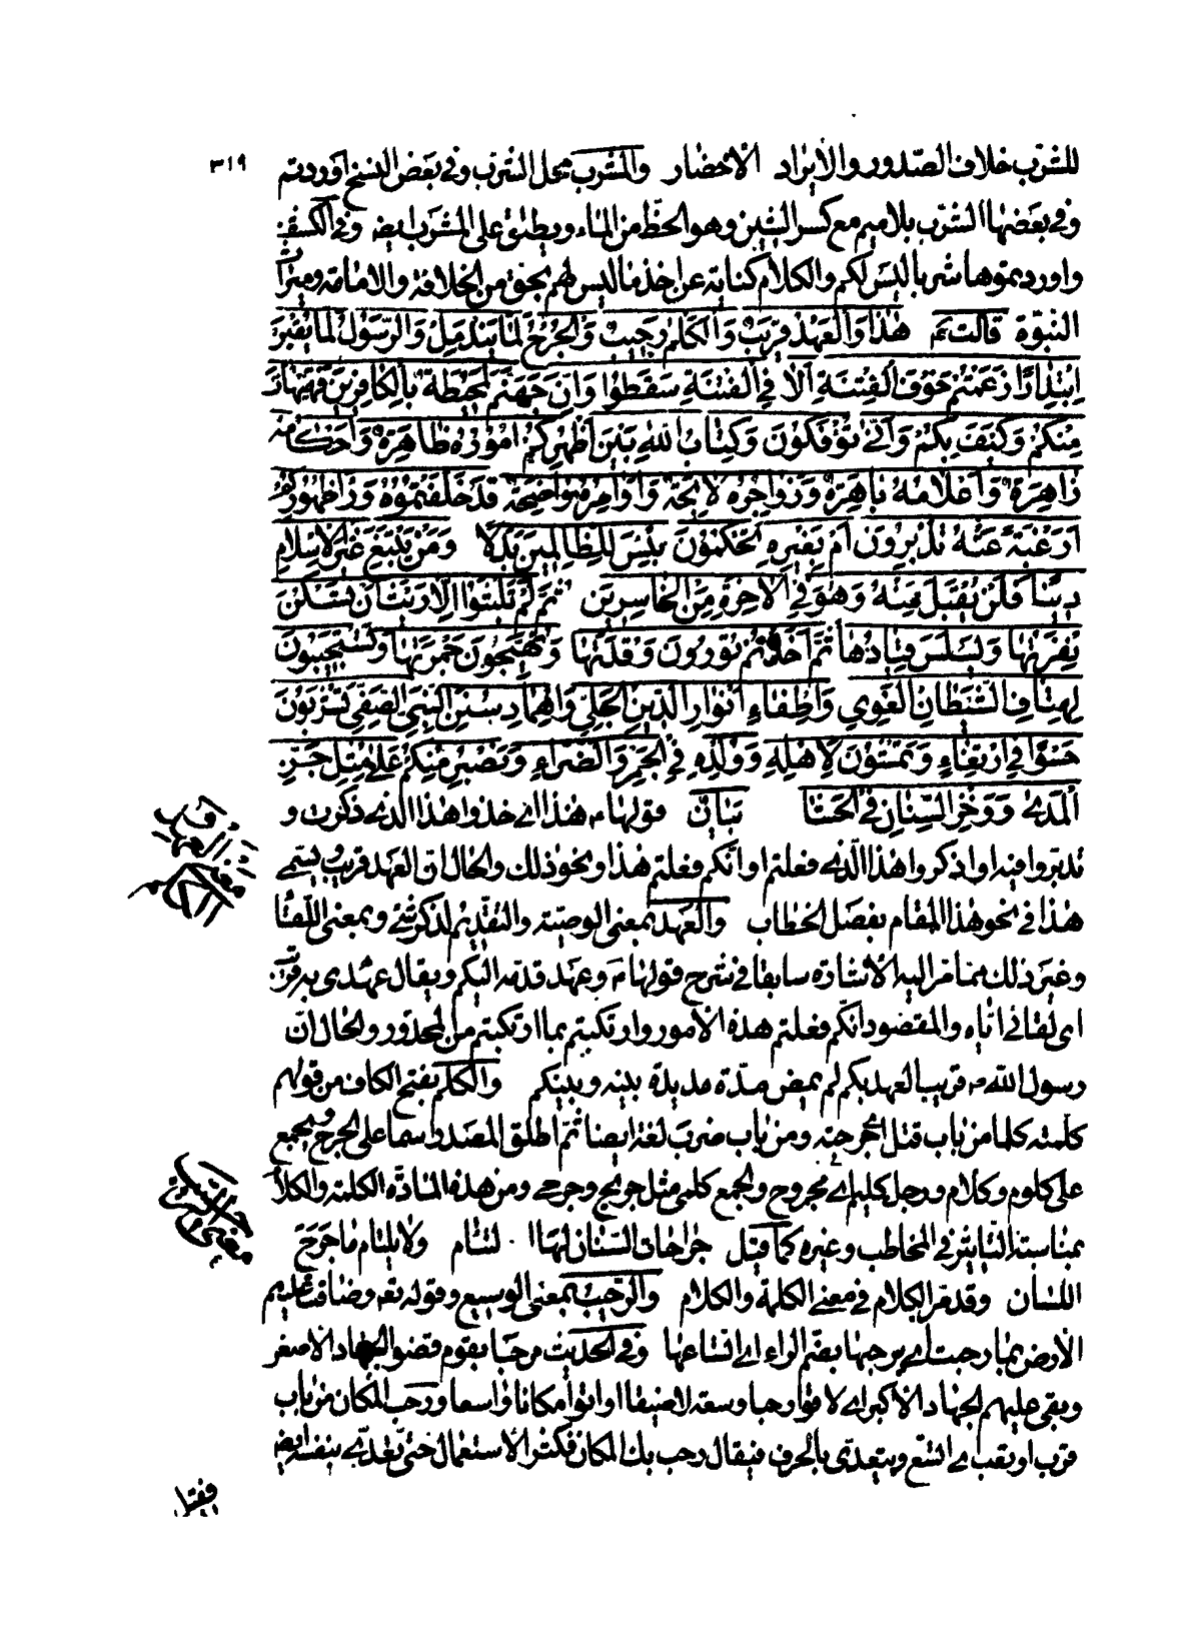 ٣١٩
للشرب خلاف الصدور والايراد الاحضار والمشرب محل الشرب وفى بعض النسخ اوردتم
وفى بعضها الشرب بلا ميم مع كسر الشين وهو الحظ من الماء ويطلق على المشرب ايض وفى الكشف
واوردتموها شربا ليس لكم والكلام كناية عن اخذ ما ليس لهم بحق من الخلافة والامامة وميراث
النبوة قالت ع هٰذا وَالْعَهْدُ قَرِيبٌ وَالْكَلْمُ رَحِيبٌ وَالْجُرْحُ لَمّا يَنْدَمِلْ وَالرَّسُولُ لَمّا يُقْبَرْ
اِبْتِدارًا زَعَمْتُمْ خَوْفَ الْفِتْنَةِ اَلا فِي الْفِتْنَةِ سَقَطُوا وَاِنَّ جَهَنَّمَ لَمُحيطَةٌ بِالْكافِرينَ فَهَيْهاتَ
مِنْكُمْ وَكَيْفَ بِكُمْ وَاَنّىٰ تُؤْفَكُونَ وَكِتابُ اللهِ بَيْنَ اَظْهُرِكُمْ اُمُورُهُ ظاهِرَةٌ وَاَحْكامُهُ
زاهِرَةٌ وَاَعْلامُهُ باهِرَةٌ وَزَواجِرُهُ لائِحَةٌ وَاَوامِرُهُ واضِحَةٌ قَدْ خَلَّفْتُمُوهُ وَراءَ ظُهُورِكُمْ
اَرَغْبَةً عَنْهُ تُدْبِرُونَ اَمْ بِغَيْرِهِ تَحْكُمُونَ بِئْسَ لِلظّالِمينَ بَدَلًا وَمَنْ يَبْتَغِ غَيْرَ الْاِسْلامِ
دينًا فَلَنْ يُقْبَلَ مِنْهُ وَهُوَ فِي الْآخِرَةِ مِنَ الْخاسِرينَ ثُمَّ لَمْ تَلْبَثُوا اِلّا رَيْثَ اَنْ تَسْكُنَ
نَفْرَتُها وَيَسْلَسَ قِيادُها ثُمَّ اَخَذْتُمْ تُورُونَ وَقْدَتَها وَتُهَيِّجُونَ جَمْرَتَها وَتَسْتَجيبُونَ
لِهِتافِ الشَّيْطانِ الْغَوِيِّ وَاِطْفاءِ اَنْوارِ الدّينِ الْجَلِيِّ وَاِهْمادِ سُنَنِ النَّبِيِّ الصَّفِيِّ تُسِرُّونَ
حَسْوًا فِي ارْتِغاءٍ وَتَمْشُونَ لِاَهْلِهِ وَوُلْدِهِ فِي الْخَمَرِ وَالضَّراءِ وَنَصْبِرُ مِنْكُمْ عَلىٰ مِثْلِ حَزِّ
الْمُدىٰ وَوَخْزِ السِّنانِ فِي الْحَشا تبيان قولها ع هذا اى خذوا هذا الذى ذكرت و
تدبروا فيه او اذكروا هذا الذى فعلتم او انكم فعلتم هذا ونحو ذلك والحال ان العهد قريب ويسمى
هذا فى نحو هذا المقام بفصل الخطاب والعهد بمعنى الوصية والتقديم لذكر شئ وبمعنى اللقاء
وغير ذلك مما مر اليه الاشارة سابقا فى شرح قولها ع وعهد قدمه اليكم ويقال عهدى به قريب
اى لقائى اياه والمقصود انكم فعلتم هذه الامور وارتكبتم بما ارتكبتم من المحذور والحال ان
رسول الله ص قريب العهد بكم لم يمض مدة مديدة بينه وبينكم والكلم بفتح الكاف من قولهم
كلمته كلما من باب قتل اى جرحته ومن باب ضرب لغة ايضا ثم اطلق المصدر اسما على الجرح ويجمع
على كلوم وكلام ورجل كليم اى مجروح والجمع كلمى مثل جريح وجرحى ومن هذه المادة الكلمة والكلام
بمناسبة التاثير فى المخاطب وغيره كما قيل جراحات السنان لها التئام ولا يلتام ما جرح
اللسان وقد مر الكلام فى معنى الكلمة والكلام والرحيب بمعنى الوسيع وقوله تعه وضاقت عليهم
الارض بما رحبت اى برحبها بضم الراء اى اتساعها وفى الحديث مرحبا بقوم قضوا الجهاد الاصغر
وبقى عليهم الجهاد الاكبر اى لاقوا رحبا وسعة لا ضيقا او اتوا مكانا واسعا ورحب المكان من باب
قرب او تعب اى اتسع ويتعدى بالحرف فيقال رحب بك المكان فكثر الاستعمال حتى تعدى بنفسه ايض
معنى العهد
الكلم
معنى الرحيب
فقيل